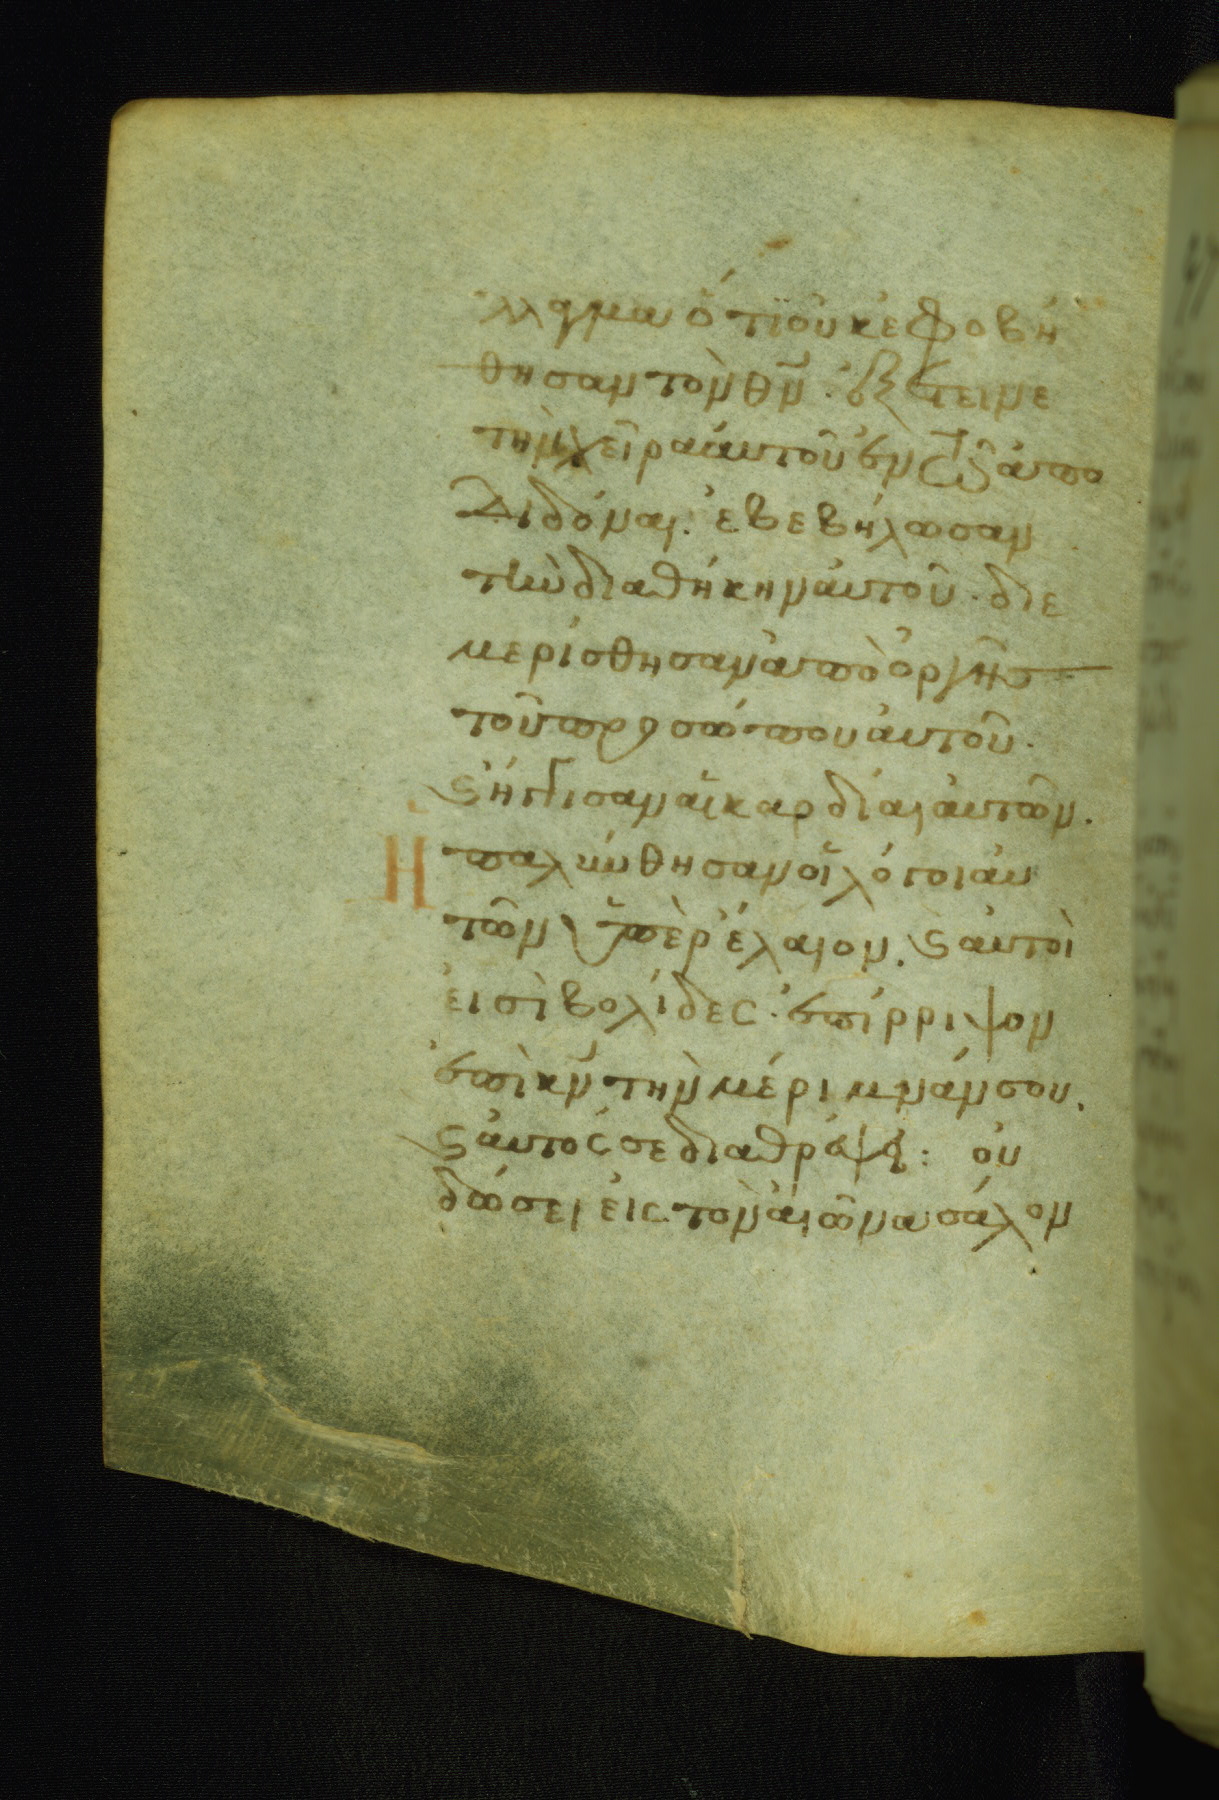 λλαγμα ὅτι οὐκ ἐφοβή
θησαν τὸν θν̄. ἐξέτεινε
τὴν χεῖρα αὐτοῦ ἐν τῷ ἀπο
διδόναι. ἐβεβήλωσαν
τὴν διαθήκην αὐτοῦ. διε
μερίσθησαν ἀπὸ ὀργῆς
τοῦ προσώπου αὐτοῦ.
ϗ ἤγγισαν αἱ καρδίαι αὐτῶν.
Η παλύνθησαν οἱ λόγοι αὐ
τῶν ὑπὲρ ἔλαιον. ϗ αὐτοί
εἰσὶ βολίδες. ἐπίρριψον
ἐπὶ κν̄ τὴν μέριμνάν σου.
ϗ αὐτός σε διαθρέψει: οὐ
δώσει εἰς τὸν αἰῶνα σάλον